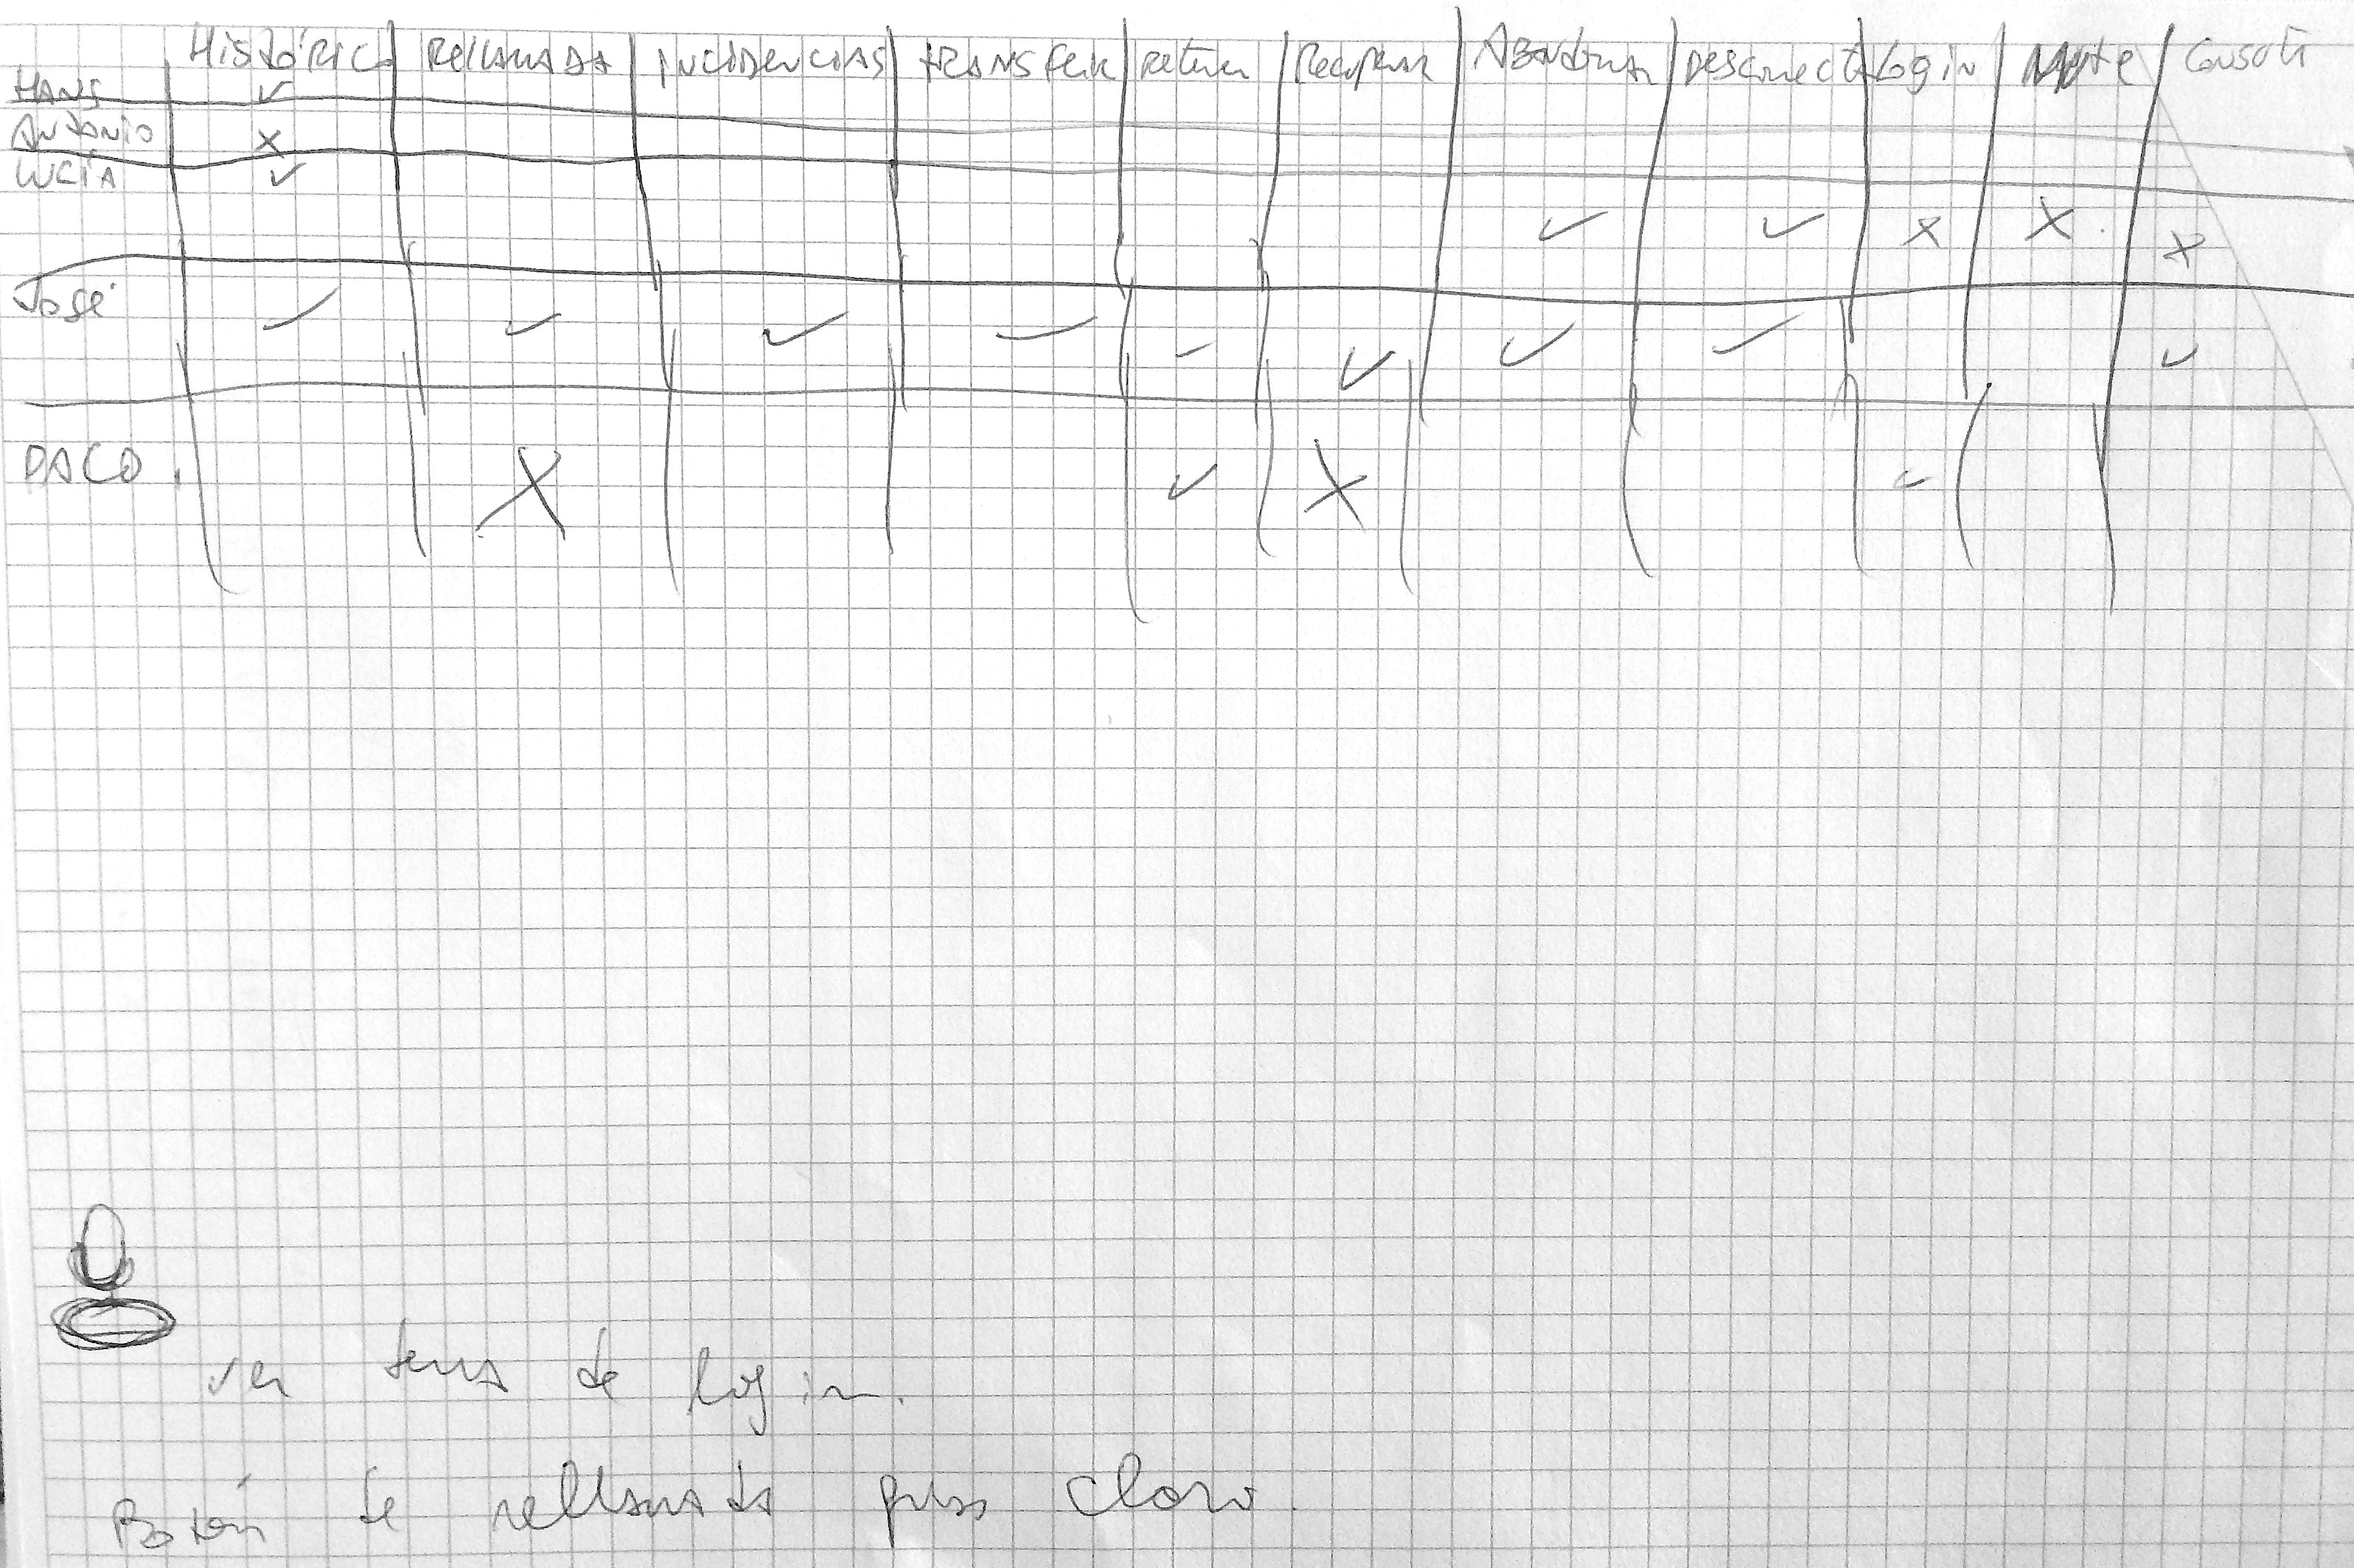 HISTÓRICO RELLAMADA INCIDENCIAS TRANSFERIR retener Recuperar Abandonar Desconecta Login Mute Consulti
HANS ✓
ANTONIO X
LUCÍA ✓ ✓ ✓ X X X
José ✓ ✓ ✓ ✓ ✓ ✓ ✓ ✓ ✓
PACO. X ✓ X ✓
ver tema de login.
Botón de rellamada poco claro.